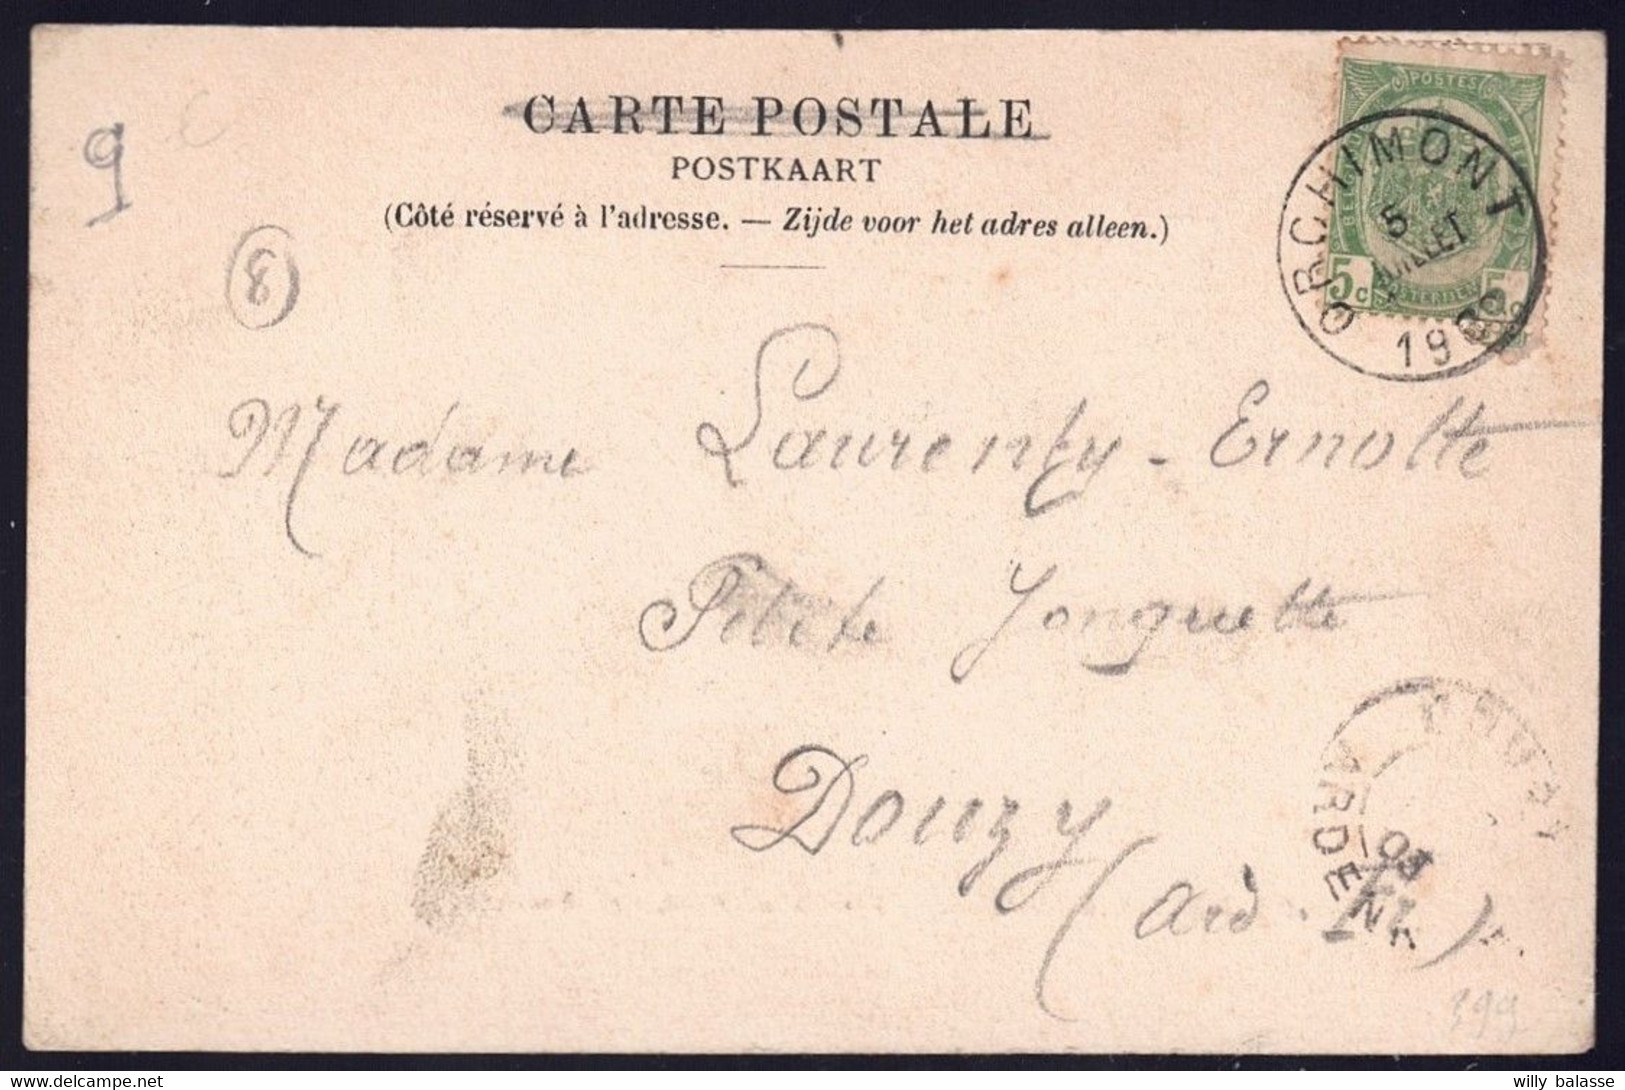 CARTE POSTALE
POSTKAART
(Côté réservé à l'adresse. — Zijde voor het adres alleen.)
9
8
POSTES
5c
ORCHIMONT
5
JUILLET
19
Madame Laurenty - Ernotte
Petite Jonquette
Douzy
(Ard.)
ARDENN
399
willy balasse